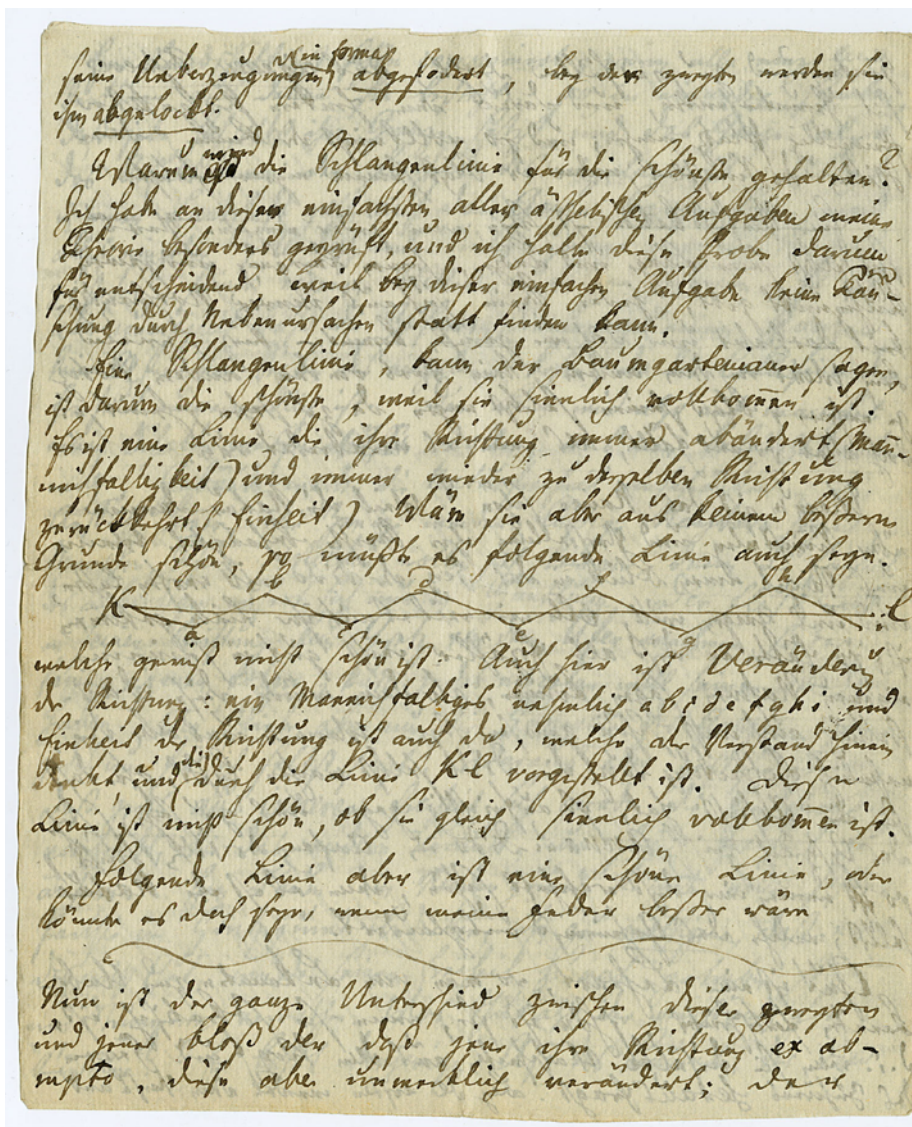 seine Ueberzeugungen (in forma) abgefodert, bey der zweyten werden sie
ihm abgelockt.
Warum wird die Schlangenlinie für die schönste gehalten?
Ich habe an dieser einfachsten aller ästhetischen Aufgaben meine
Theorie besonders geprüft, und ich halte diese Probe darum
für entscheidend weil bey dieser einfachen Aufgabe keine Täu-
schung durch Nebenursachen statt finden kann.
Eine Schlangenlinie, kann der Baumgartenianer sagen,
ist darum die schönste, weil sie sinnlich vollkom̅en ist.
Es ist eine Linie, die ihre Richtung immer abändert (Man̅-
nichfaltigkeit) und immer wieder zu derselben Richtung
zurückkehrt (Einheit) Wäre sie aber aus keinem beßern
Grunde schön, so müßte es folgende Linie auch seyn.
K b d f h l
a c e g i
welche gewiß nicht schön ist. Auch hier ist Veränderung
der Richtung: ein Mannichfaltiges nehmlich a b c d e f g h i und
Einheit der Richtung ist auch da, welche der Verstand hinein
denkt, und die durch die Linie K l vorgestellt ist. Diese
Linie ist nicht schön, ob sie gleich sinnlich vollkom̅en ist.
Folgende Linie aber ist eine schöne Linie, oder
könnte es doch seyn, wenn meine Feder beßer wäre
Nun ist der ganze Unterschied zwischen dieser zweyten
und jener bloß der daß jene ihre Richtung ex ab-
rupto, diese aber unmerklich verändert; der